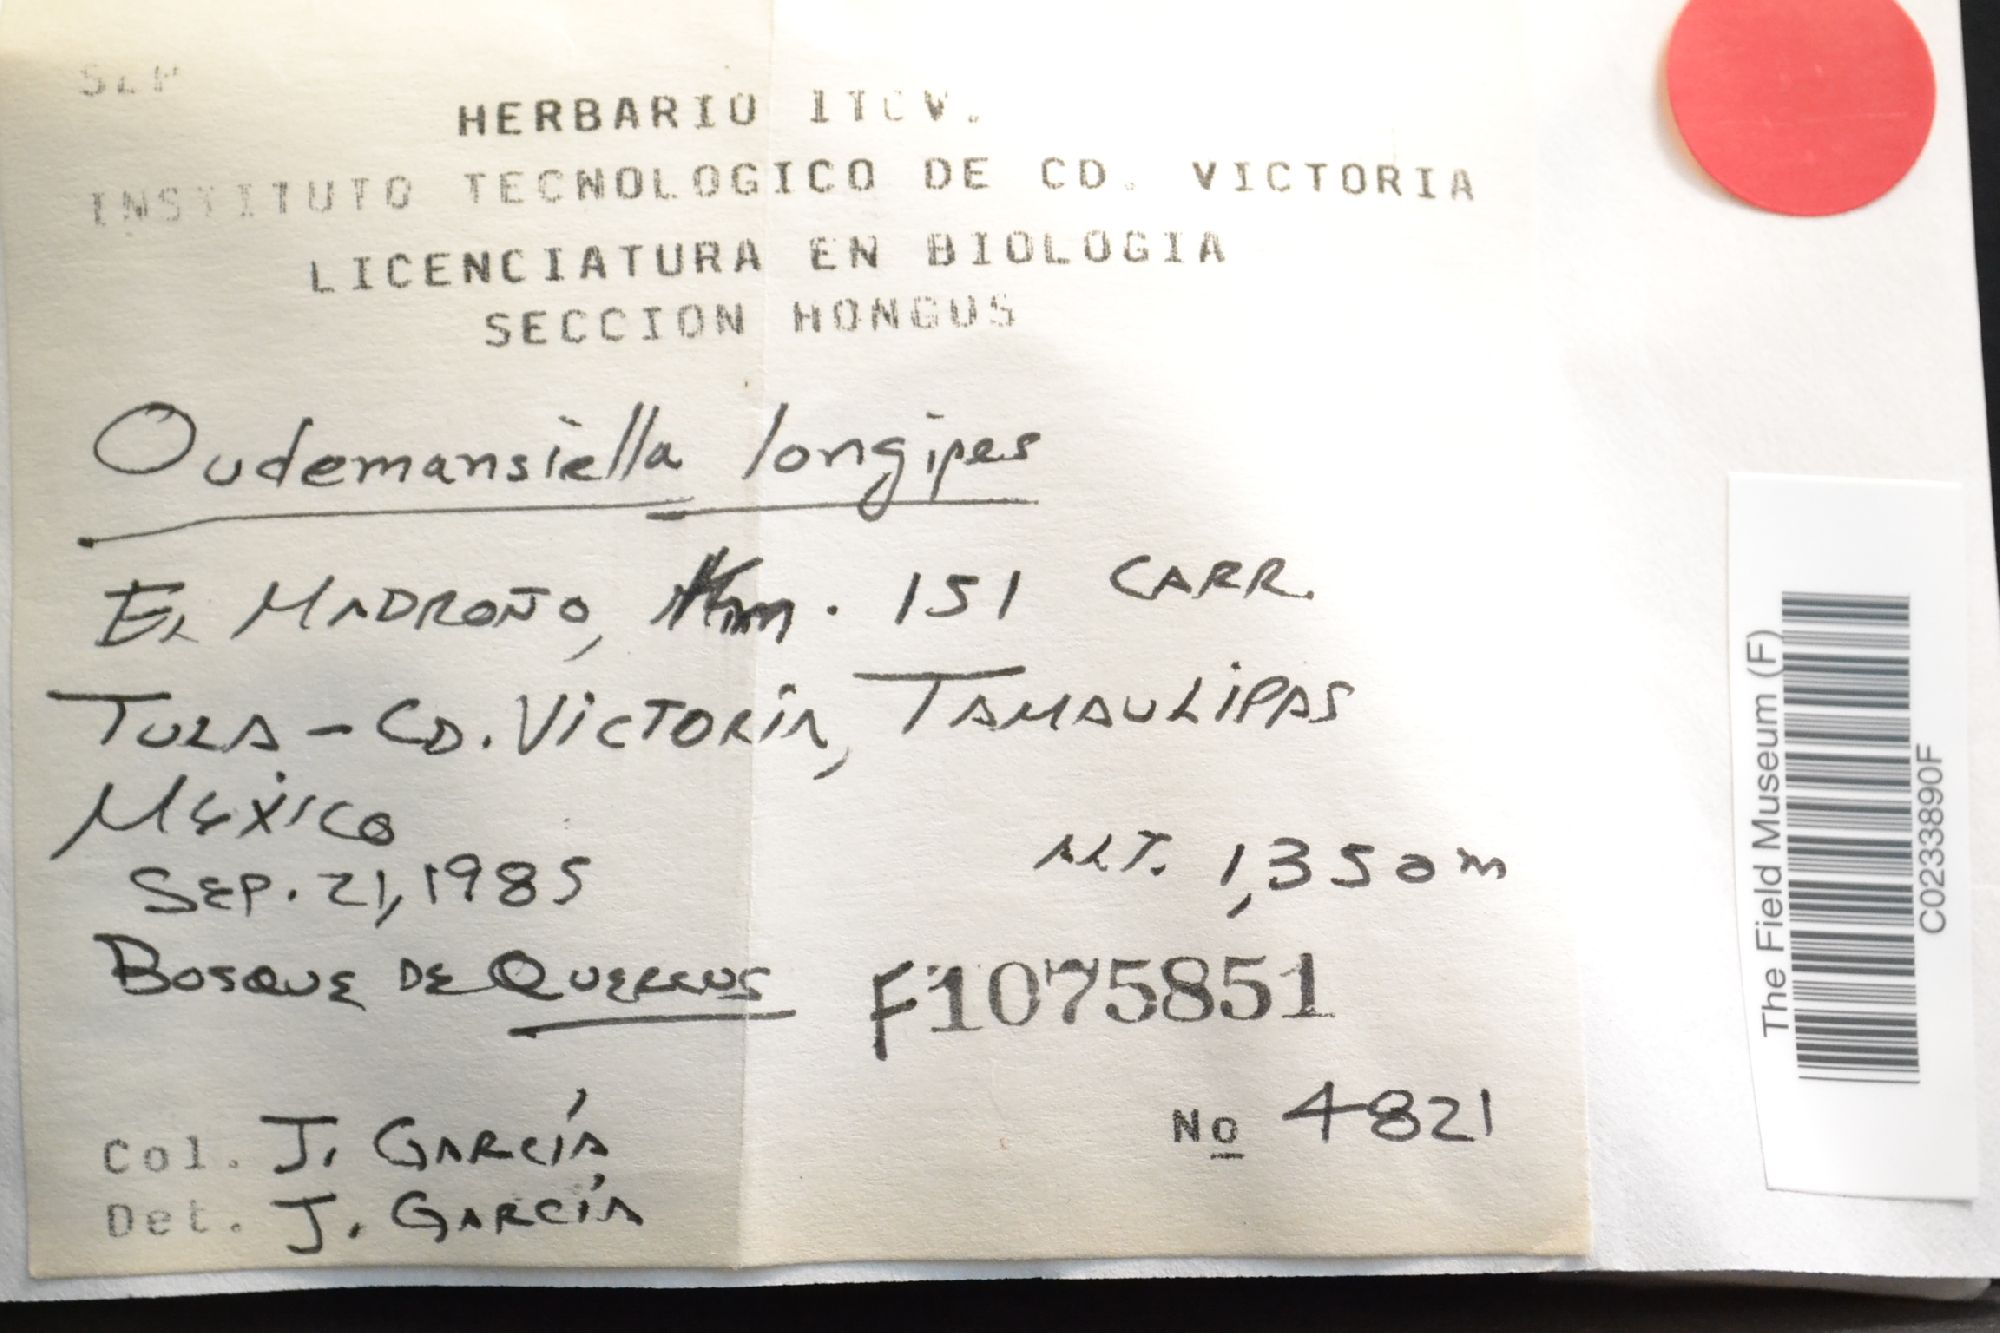 SEP
HERBARIO ITCV.
INSTITUTO TECNOLOGICO DE CD. VICTORIA
LICENCIATURA EN BIOLOGIA
SECCION HONGOS
Oudemansiella longipes
EL MADROÑO, Km. 151 CARR.
TULA - CD. VICTORIA, TAMAULIPAS
MÉXICO
SEP. 21, 1985
ALT. 1,350 m
BOSQUE DE QUERCUS
F1075851
No 4821
Col. J. GARCÍA
Det. J. GARCÍA
The Field Museum (F)
C0233890F